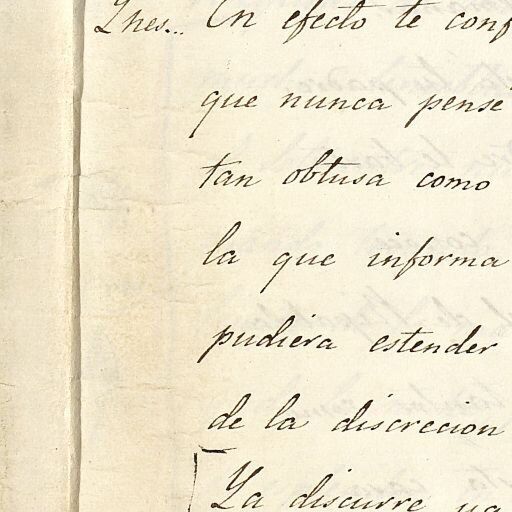 Ynes... En efecto te conf
que nunca pensé
tan obtusa como
la que informa
pudiera estender
de la discrecion
Ya discurre ya